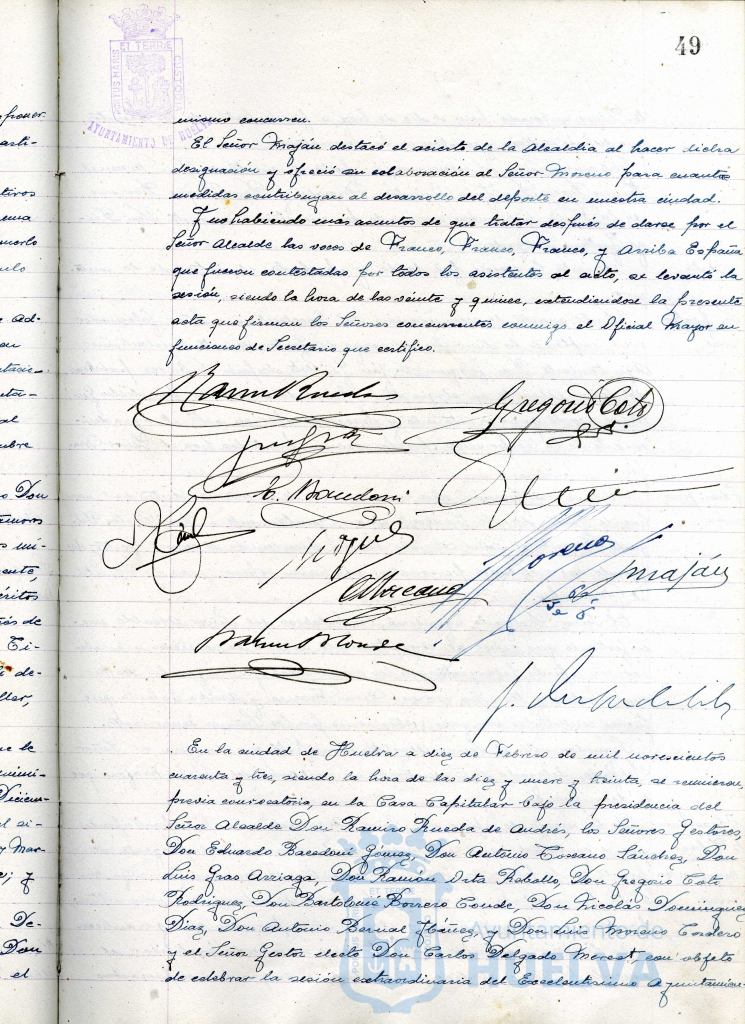 49
PORTUS MARIS ET TERRÆ CUSTODIA
AYUNTAMIENTO DE HUELVA
mismo concurren.
El Señor Maján destacó el acierto de la Alcaldía al hacer dicha
designación y ofreció su colaboración al Señor Moreno para cuantas
medidas contribuyan al desarrollo del deporte en nuestra ciudad.
Y no habiendo más asuntos de que tratar después de darse por el
Señor Alcalde las voces de Franco, Franco, Franco, y Arriba España
que fueron contestadas por todos los asistentes al acto, se levantó la
sesión, siendo la hora de las veinte y quince, extendiendose la presente
acta que firman los Señores concurrentes conmigo el Oficial Mayor en
funciones de Secretario que certifico.
Gregorio Coto
Moreno
Maján
En la ciudad de Huelva a diez de Febrero de mil novescientos
cuarenta y tres, siendo la hora de las diez y nueve y treinta, se reunieron,
previa convocatoria, en la Casa Capitular bajo la presidencia del
Señor Alcalde Don Ramiro Rueda de Andrés, los Señores Gestores,
Don Eduardo Bacedoni Gómez, Don Antonio Toscano Sánchez, Don
Luis Gras Arriaga, Don Ramón Orta Rebollo, Don Gregorio Coto
Rodríguez, Don Bartolomé Borrero Conde, Don Nicolás Domínguez
Diaz, Don Antonio Bernal Ybáñez y Don Luis Moreno Cordero
y el Señor Gestor electo Don Carlos Delgado Merest, con objeto
de celebrar la sesión extraordinaria del Excelentisimo Ayuntamien-
Ayuntamiento de
HUELVA